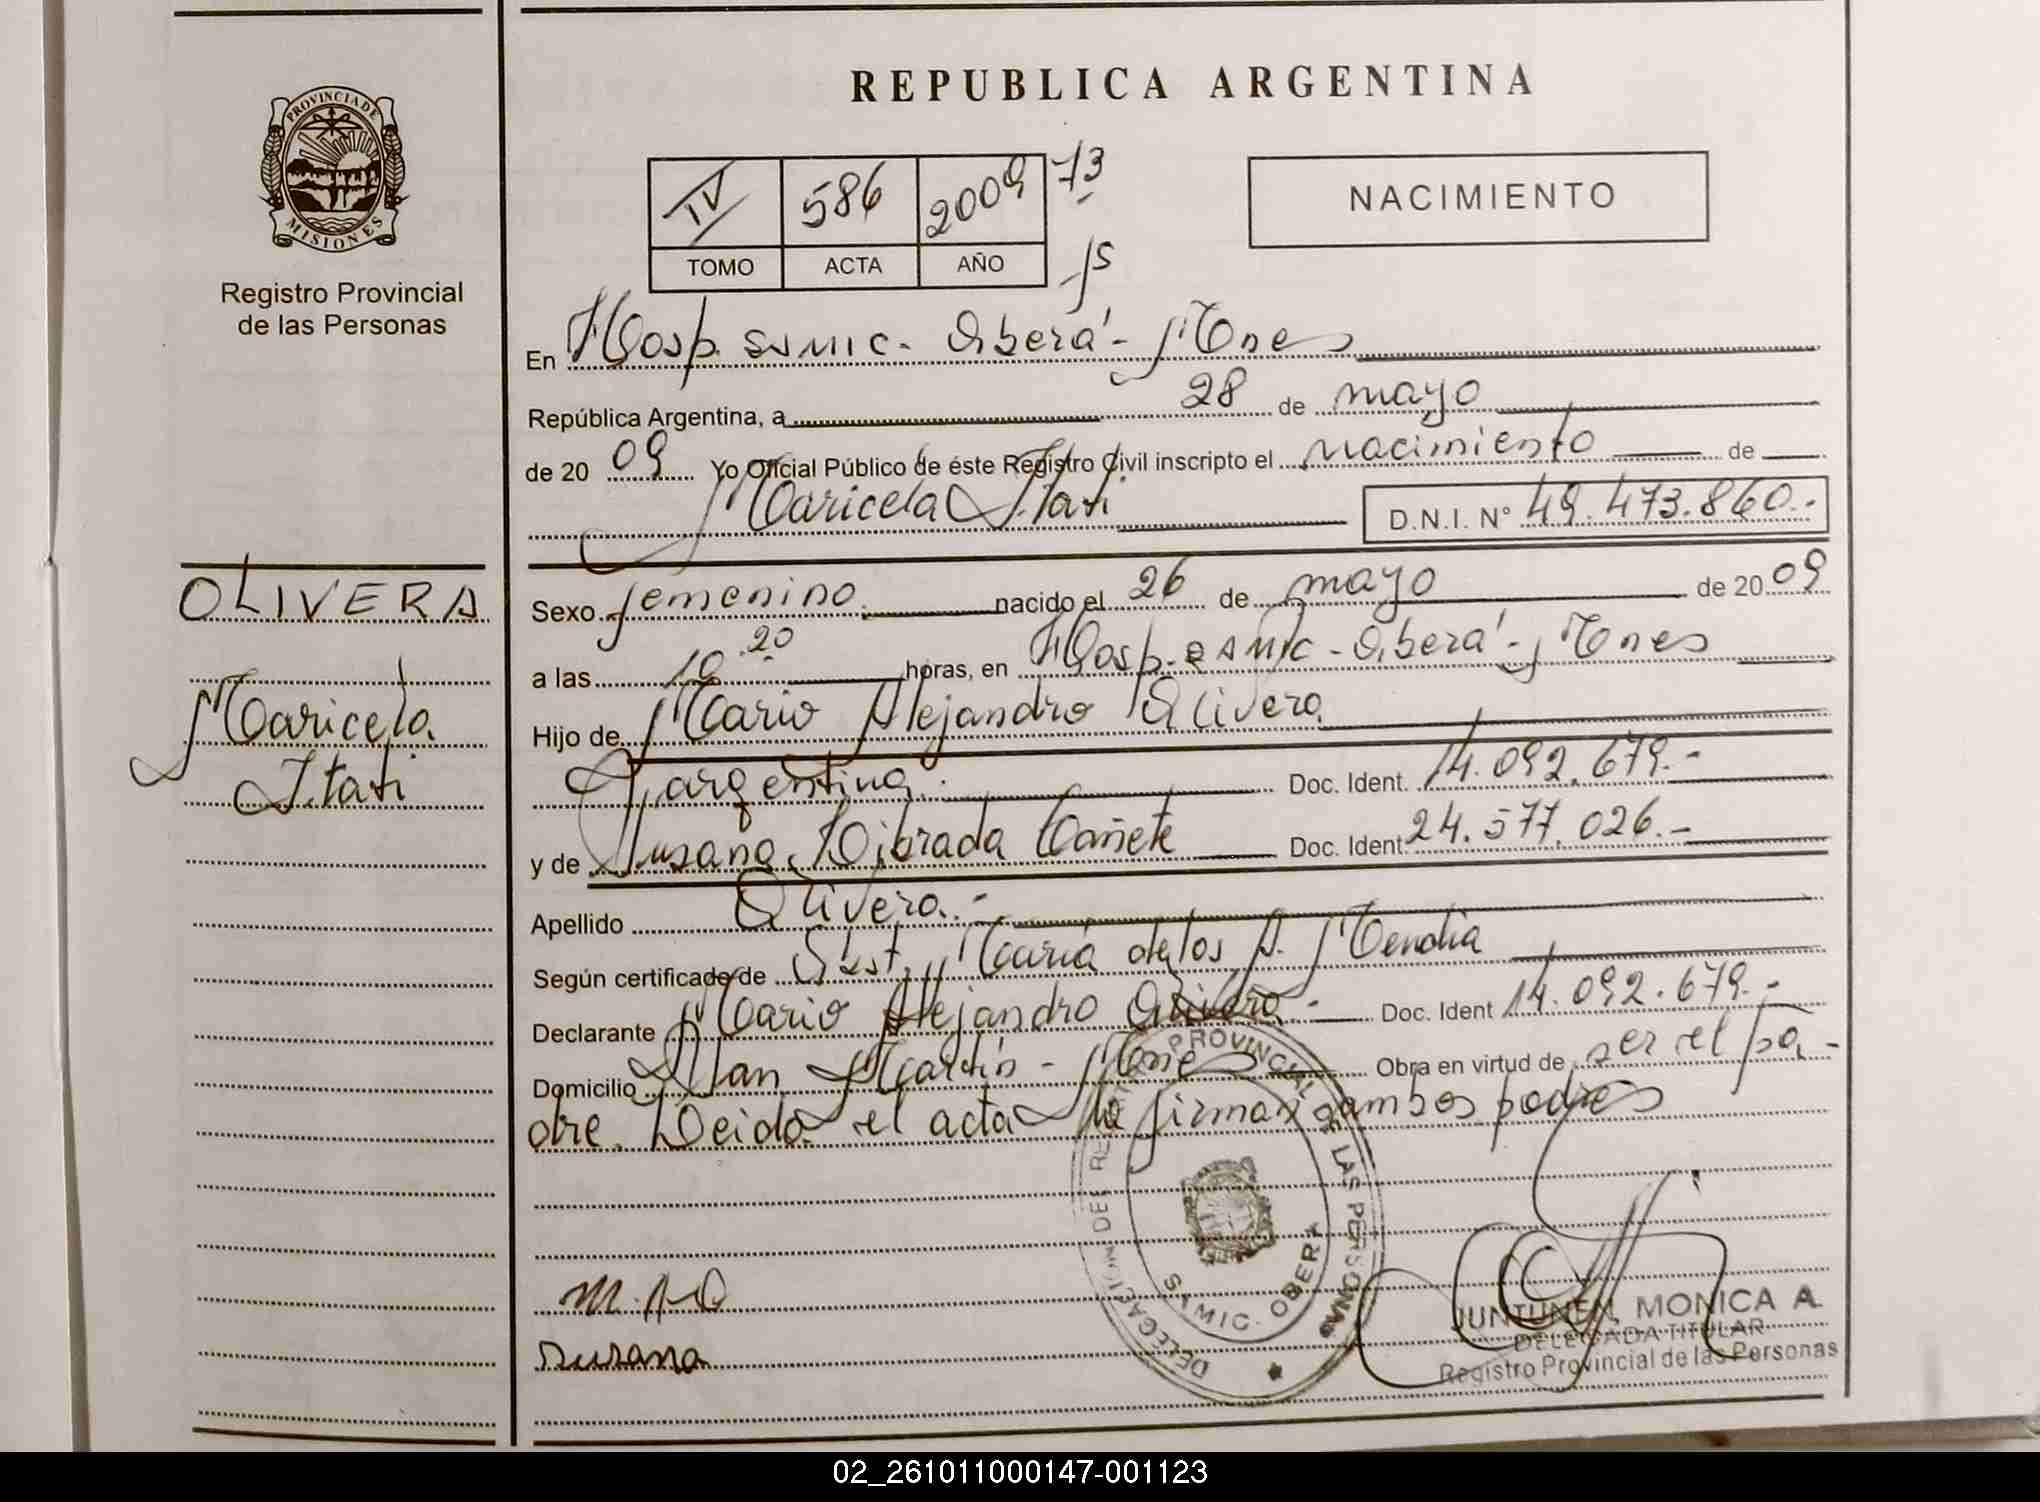 REPUBLICA ARGENTINA
PROVINCIA DE
MISIONES
Registro Provincial
de las Personas
IV 586 2009 73
TOMO ACTA AÑO
NACIMIENTO
En Hosp. SAMIC - Oberá - Mnes
República Argentina, a 28 de mayo
de 20 09 Yo Oficial Público de éste Registro Civil inscripto el nacimiento de
Maricela Itatí D.N.I. N° 49.473.860.-
OLIVERA
Maricela
Itatí
Sexo femenino nacido el 26 de mayo de 20 09
a las 10.20 horas, en Hosp. SAMIC - Oberá - Mnes
Hijo de Mario Alejandro Olivera
argentina. Doc. Ident. 14.092.679.-
y de Susana Librada Cañete Doc. Ident. 24.577.026.-
Apellido Olivera.-
Según certificado de Obst. María de los A. Mendia
Declarante Mario Alejandro Olivera - Doc. Ident 14.092.679.-
Domicilio San Martín - Mnes Obra en virtud de ser el pa-
dre. Leída el acta la firman ambos padres
DELEGACION DEL REGISTRO PROVINCIAL DE LAS PERSONAS
SAMIC. OBERA
Susana
JUNTUNEN, MONICA A.
DELEGADA TITULAR
Registro Provincial de las Personas
02_261011000147-001123